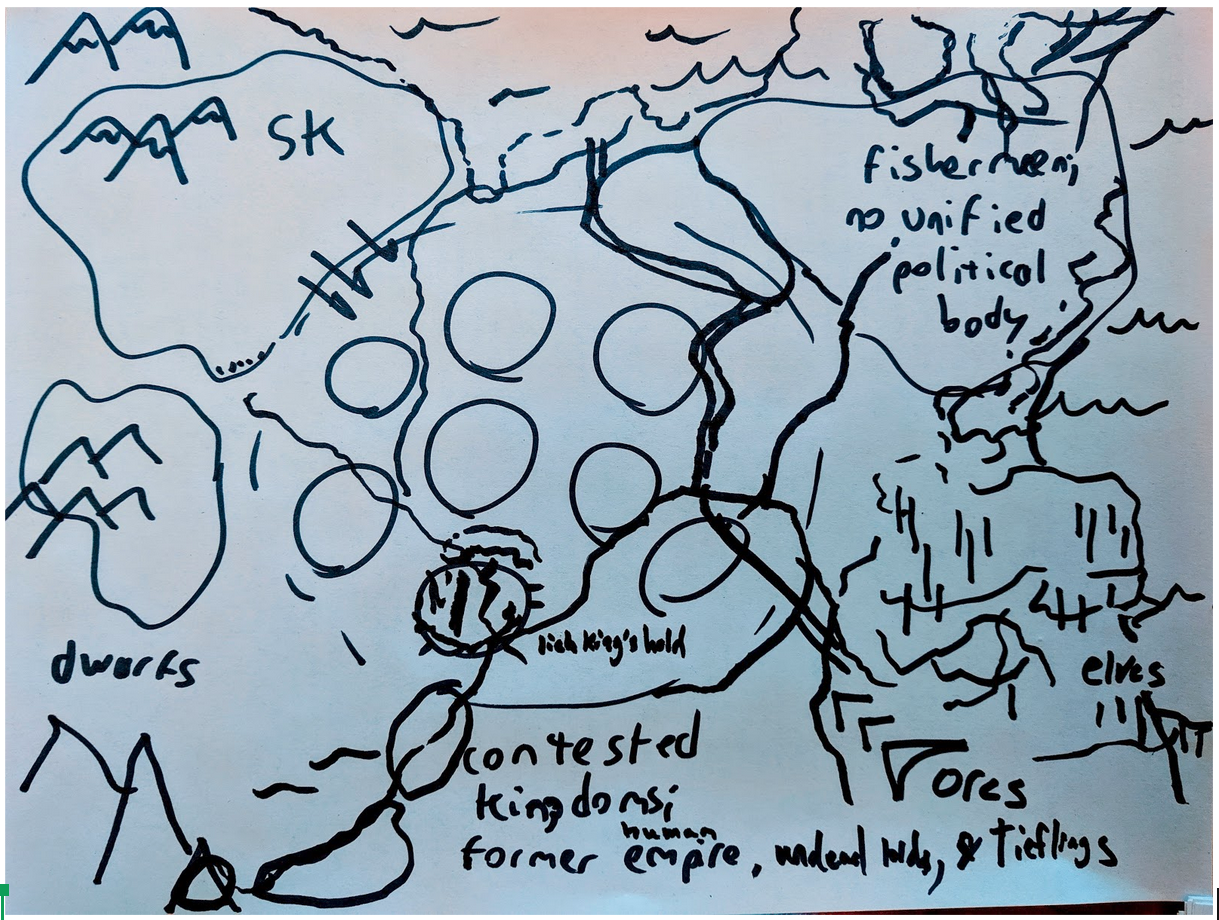 SK
fishermen;
no unified
political
body;
lich king's hold
dwarfs
elves
orcs
contested
kingdoms;
former human empire, undead holds, & Tieflings